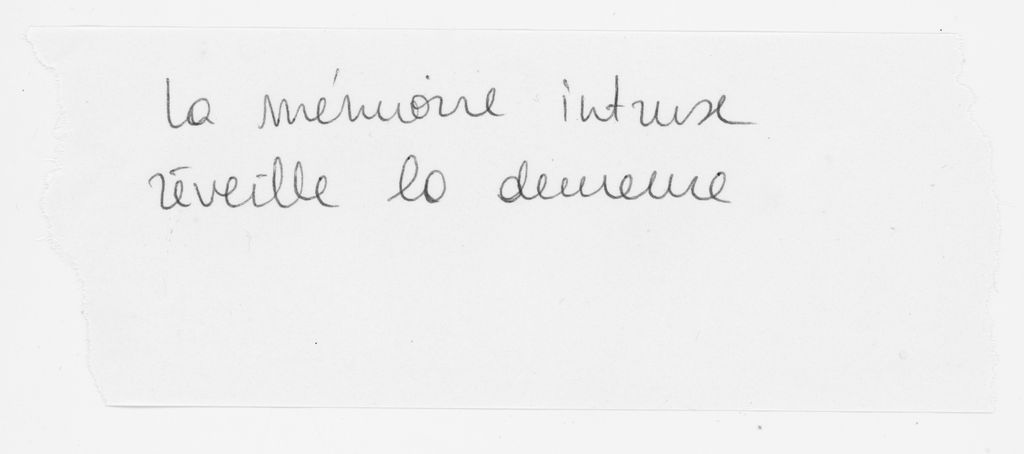 La mémoire intruse
réveille la demeure